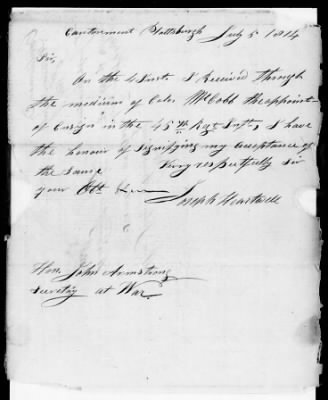 Cantonment Plattsburgh July 5 1814
Sir,
On the 4 Inst. I Received through
the medium of Colo. McCobb the appoint-
of Ensign in the 45th Regt Inft., I have
the honour of Signifying my acceptance of
the Same Very respectfully Sir
your Obt
Joseph Heartwell
Hon. John Armstrong
Secretary at War.